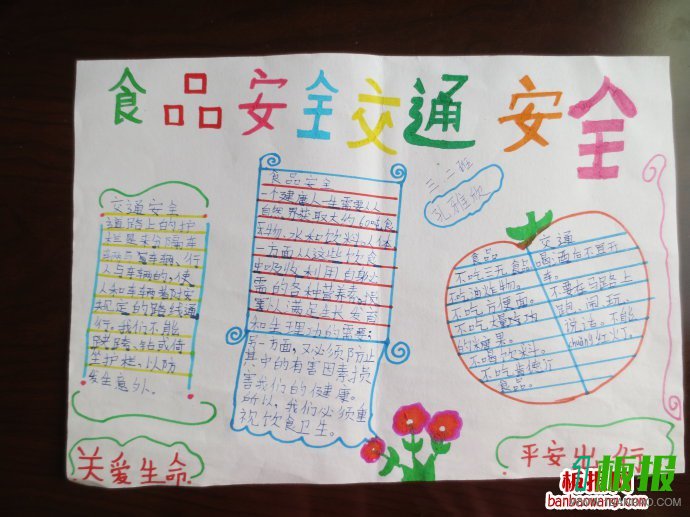 食品安全交通安全
三.二班
孔雅
交通安全
道路上的护
栏是来分隔车
辆与车辆、行
人与车辆的,使
人和车辆各安
规定的路线通
行。我们不能
跨越、钻或倚
坐护栏、以防
发生意外。
食品安全
一个健康人一生需要从
自然界获取大约60吨食
物、水和饮料。人体
一方面从这些饮食
中吸收利用自身必
需的各种营养素,
以满足生长发育
和生理功的需要;
另一方面,又必须防止
其中的有害因素损
害我们的健康。
所以,我们必须重
视饮食卫生。
食品
不吃三无食品。
不吃油炸物。
不吃方便面。
的糖果。
不喝饮料。
不吃肯德
食品。
交通
喝酒后不要开
车。
不要在马路上
跑、闹、玩、
说话,不能
chuǎng红火丁。
关爱生命
平安出行
板报
banbaowang.com